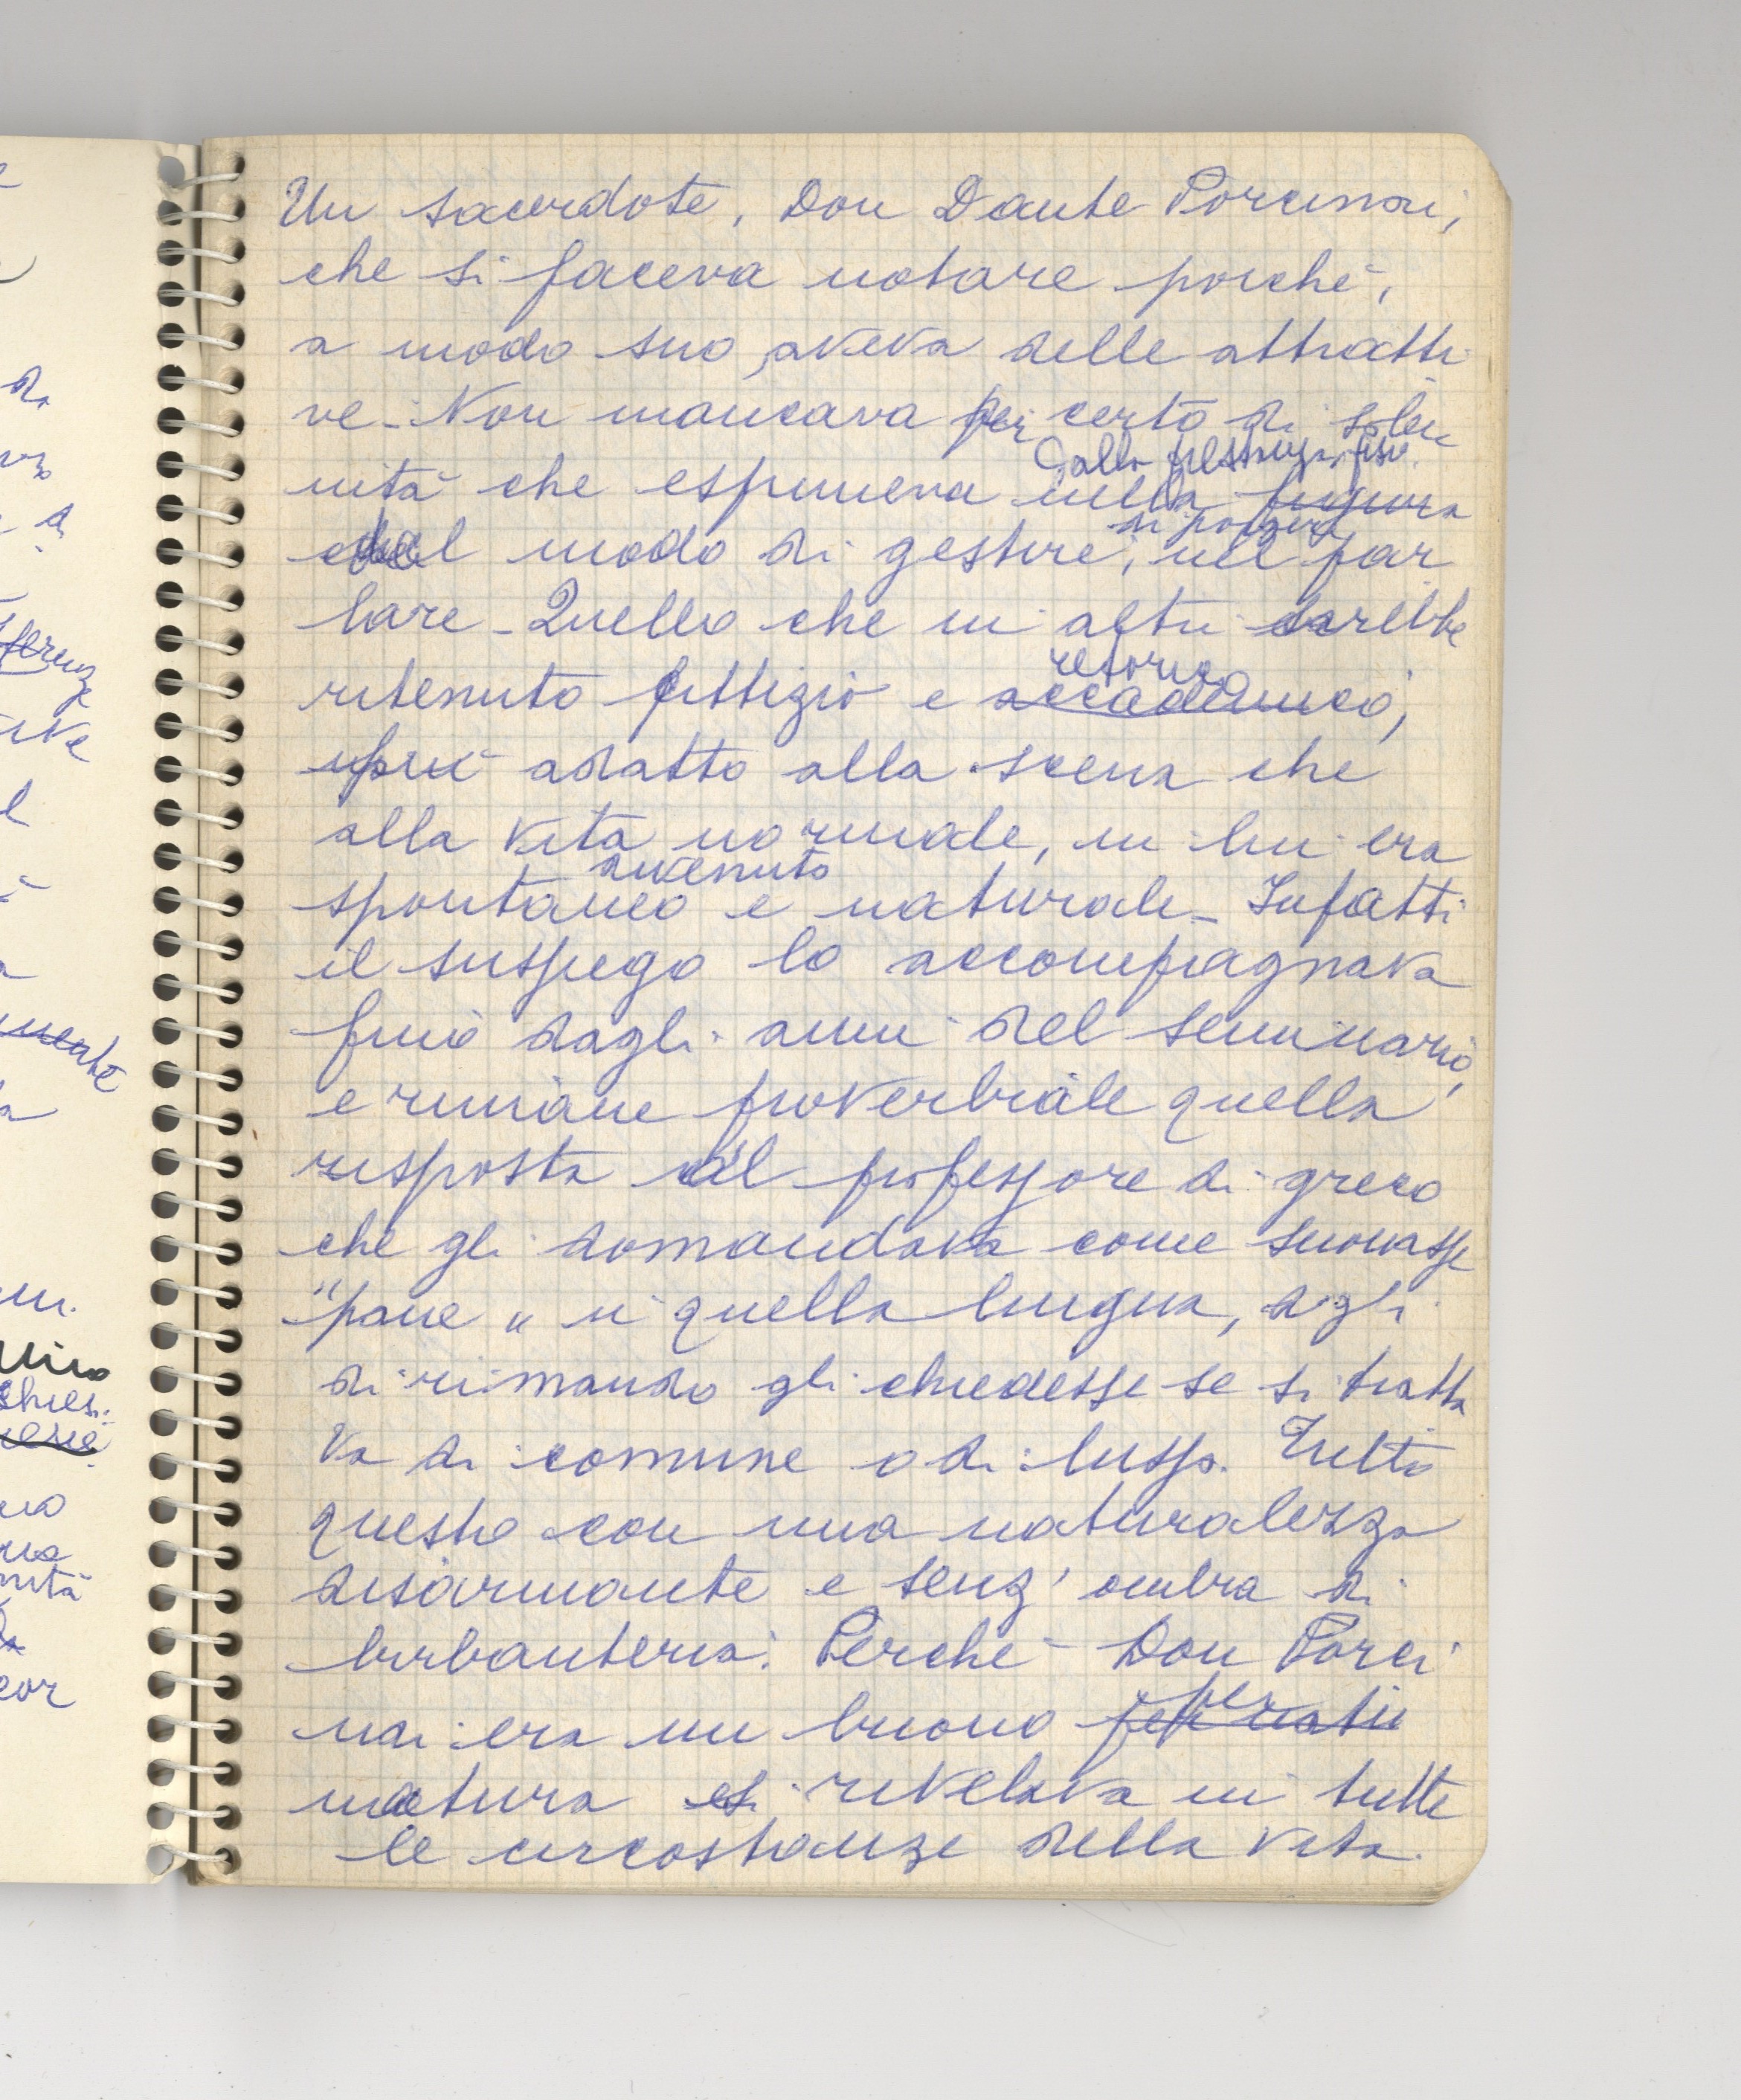 Un sacerdote, Don Dante Porcinai,
che si faceva notare perché,
a modo suo, aveva delle attratti
ve. Non mancava per certo di solen
dalla prestanza fisi
nità che esprimeva nella figura
di porgere
dal modo di gestire, nel par
lare - Quello che in altri sarebbe
retorico
ritenuto fittizio e accademico,
più adatto alla scena che
alla vita normale, in lui era
avvenuto
spontaneo e naturale - Infatti
il sussiego lo accompagnava
fino dagli anni del seminario,
e rimane proverbiale quella
risposta al professore di greco
che gli domandava come suonasse
"pane" in quella lingua, egli
di rimando gli chiedesse se si tratta
va di comune o di lusso. Tutto
questo con una naturalezza
disarmante e senz'ombra di
birbanteria. Perché Don Porci
nai era un buono per
natura si rivelava in tutte
le circostanze della vita.